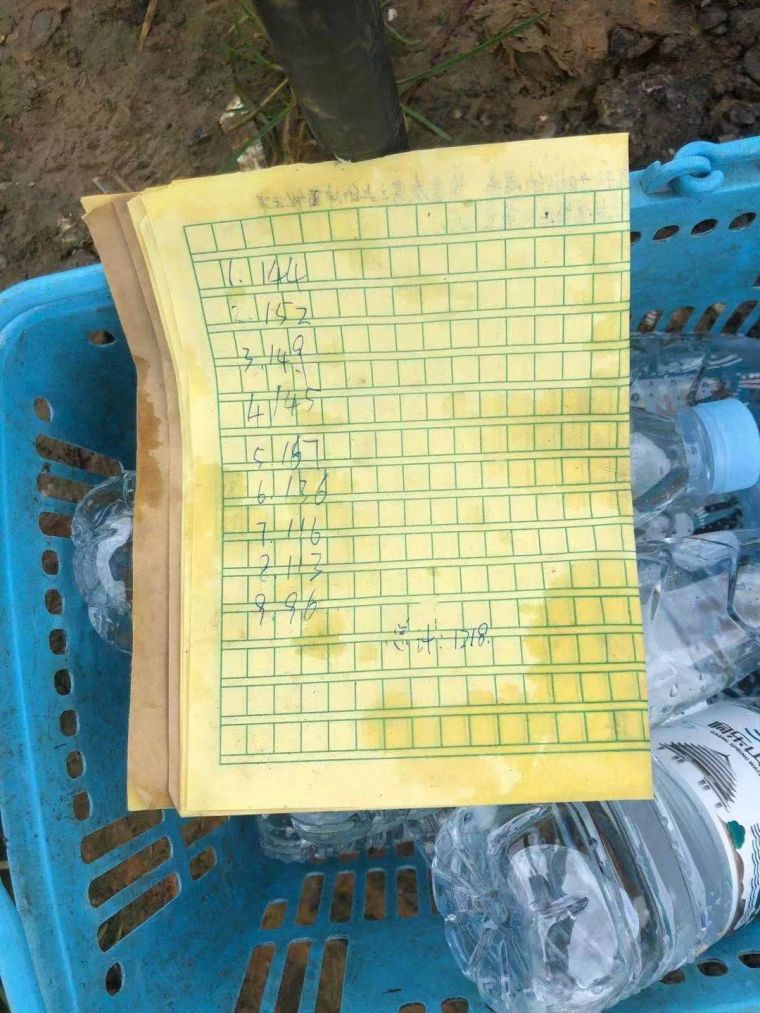 1.144
2.152
3.149
4.145
5.167
6.136
7.116
8.113
9.96
总计:1218.